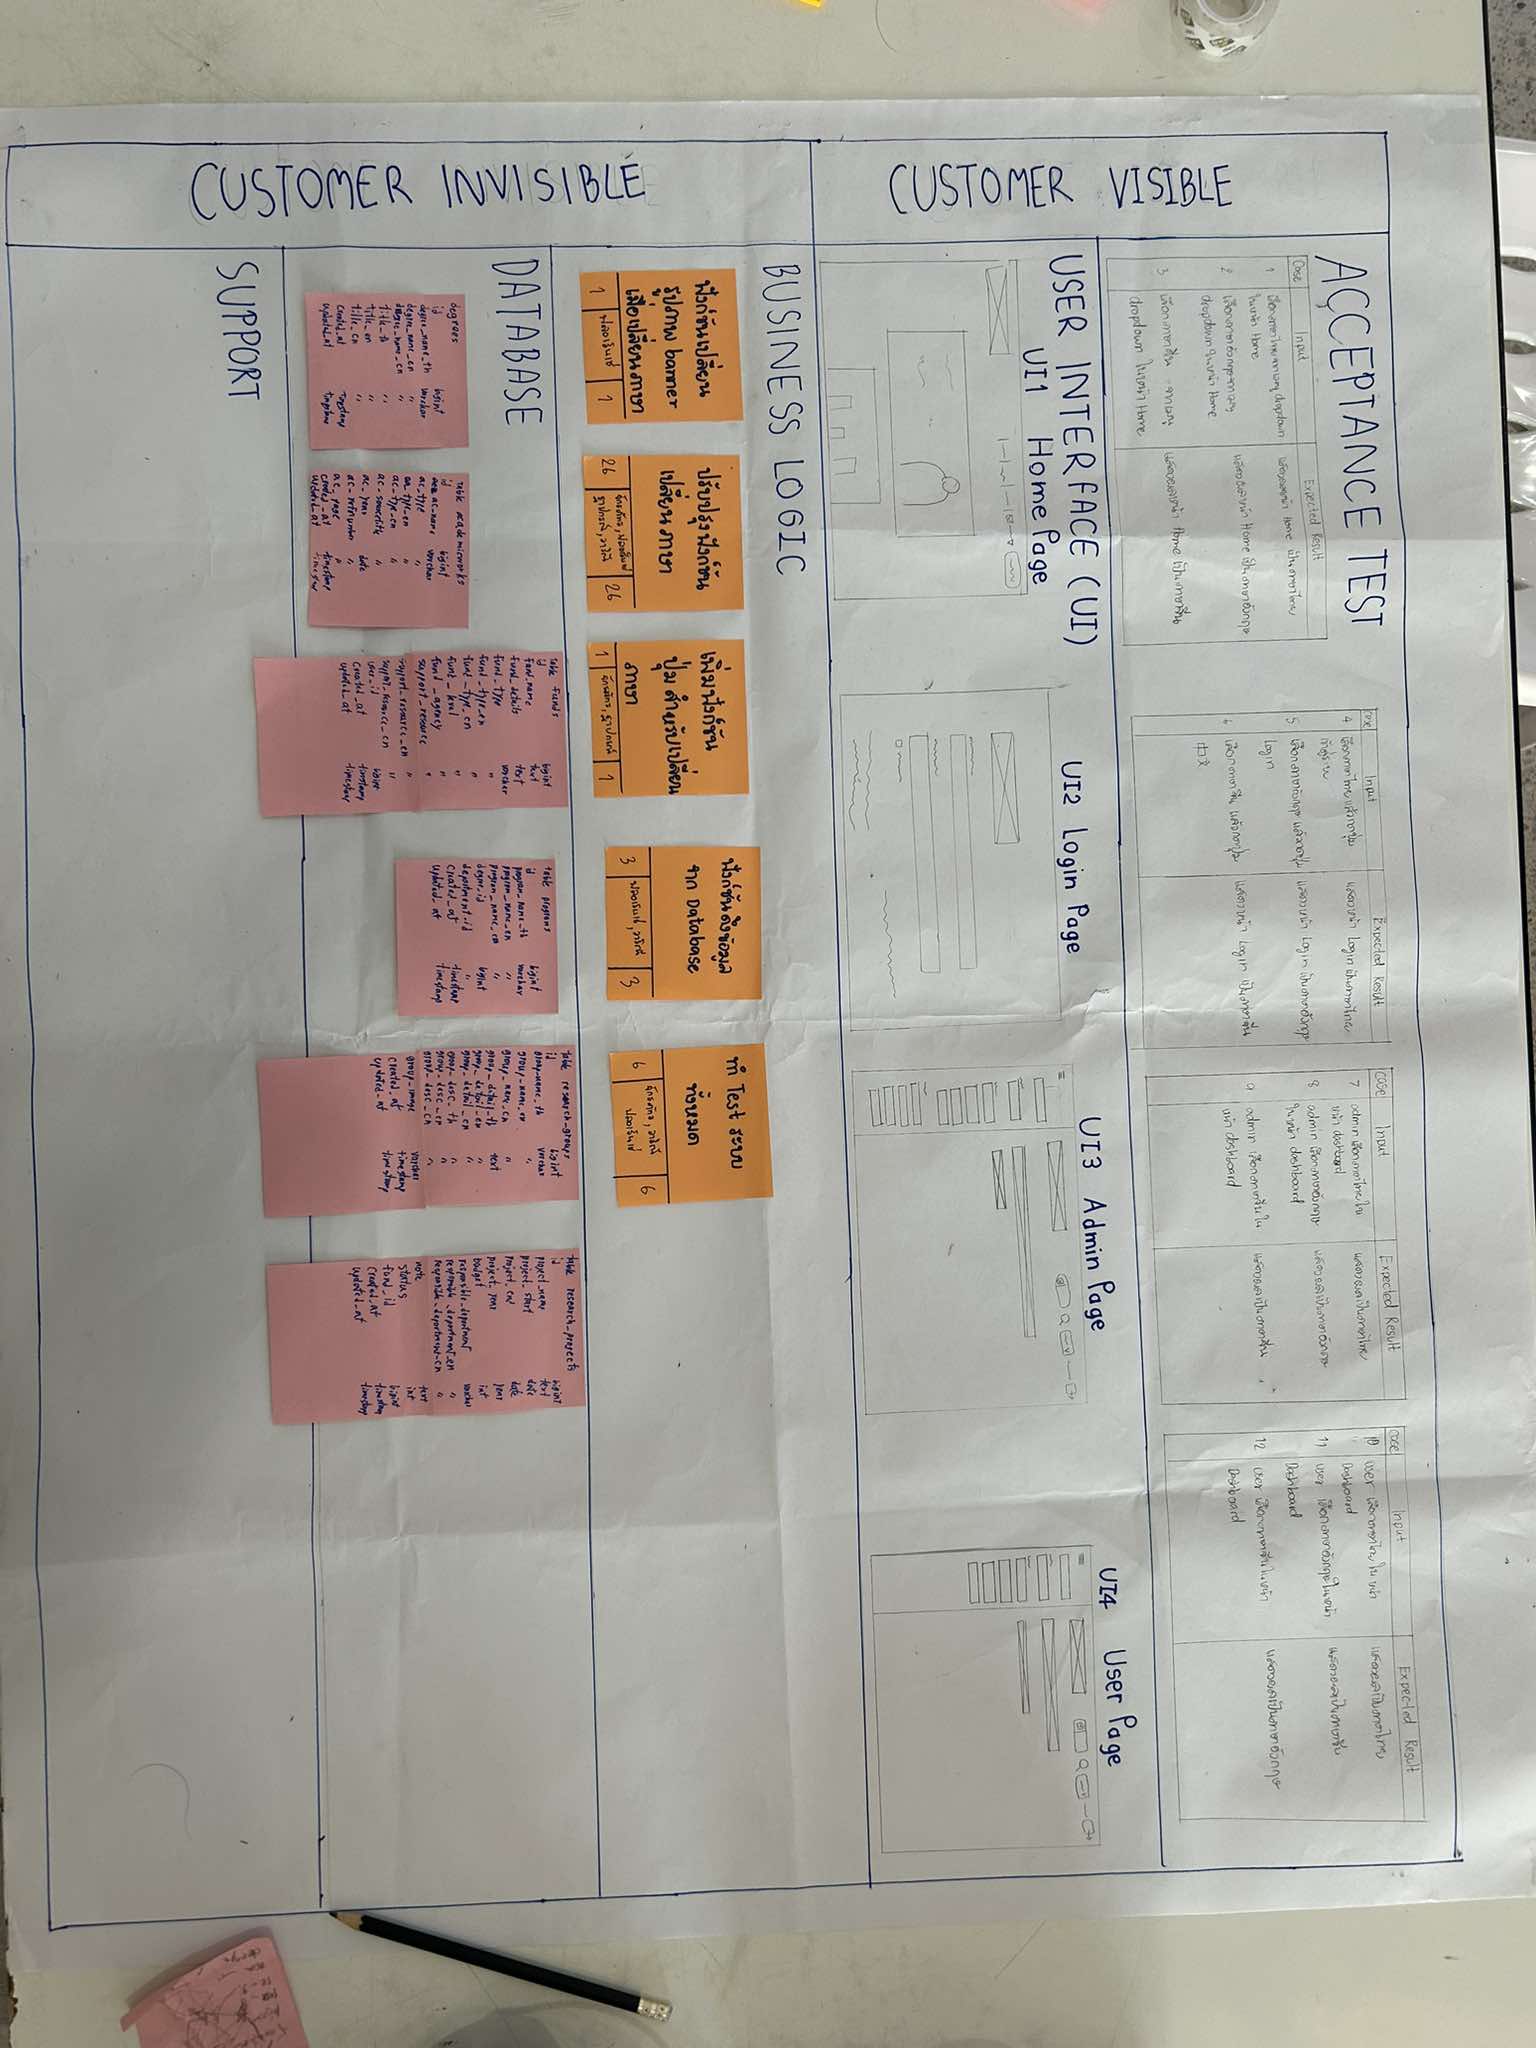 CUSTOMER VISIBLE
ACCEPTANCE TEST
Case Input Expected Result
1 เลือกภาษาไทยจากเมนู dropdown
ในหน้า Home
แสดงผลหน้า Home เป็นภาษาไทย
2 เลือกภาษาอังกฤษจากเมนู
dropdown ในหน้า Home
แสดงผลหน้า Home เป็นภาษาอังกฤษ
3 เลือกภาษาจีน จากเมนู
dropdown ในหน้า Home
แสดงผลหน้า Home เป็นภาษาจีน
case Input Expected Result
4 เลือกภาษาไทย แล้วกดปุ่ม
เข้าสู่ระบบ
แสดงหน้า Login เป็นภาษาไทย
5 เลือกภาษาอังกฤษ แล้วกดปุ่ม
Login
แสดงหน้า Login เป็นภาษาอังกฤษ
6 เลือกภาษาจีน แล้วกดปุ่ม
中文
แสดงหน้า Login เป็นภาษาจีน
case Input Expected Result
7 admin เลือกภาษาไทยใน
หน้า dashboard
แสดงผลเป็นภาษาไทย
8 admin เลือกภาษาอังกฤษ
ในหน้า dashboard
แสดงผลเป็นภาษาอังกฤษ
9 admin เลือกภาษาจีนใน
หน้า dashboard
แสดงผลเป็นภาษาจีน
case Input Expected Result
10 user เลือกภาษาไทย ใน หน้า
Dashboard
แสดงผลเป็นภาษาไทย
11 user เลือกภาษาอังกฤษในหน้า
Dashboard
แสดงผลเป็นภาษาจีน
12 user เลือกภาษาจีนในหน้า
Dashboard
แสดงผลเป็นภาษาอังกฤษ
USER INTERFACE (UI)
UI1 Home Page
UI2 Login Page
UI3 Admin Page
UI4 User Page
CUSTOMER INVISIBLE
BUSINESS LOGIC
ฟังก์ชันเปลี่ยน
รูปภาพ banner
เมื่อเปลี่ยนภาษา
1 ฟลอเร้นเช่ 1
ปรับปรุงฟังก์ชัน
เปลี่ยน ภาษา
26 จักรภัทร, ฟลอเร้นเช่ 26
ฐาปกรณ์, วาริณี
เพิ่มฟังก์ชัน
ปุ่ม สำหรับเปลี่ยน
ภาษา
1 จักรภัทร, ฐาปกรณ์ 1
ฟังก์ชันดึงข้อมูล
จาก Database
3 ฟลอเร้นเช่, วาริณี 3
ทำ Test ระบบ
ทั้งหมด
6 จักรภัทร, วาริณี 6
ฟลอเร้นเช่
DATABASE
degrees
id bigint
degree_name_th varchar
degree_name_en "
degree_name_cn "
title_th "
title_en "
title_cn "
created_at timestamp
updated_at timestamp
table academicworks
id bigint
ac_name varchar
ac_type "
ac_type_en "
ac_type_cn "
ac_sourcetitle "
ac_year date
ac_refnumber "
ac_page "
created_at timestamp
updated_at timestamp
table funds
id bigint
fund_name text
fund_details text
fund_type varchar
fund_type_en "
fund_type_cn "
fund_level "
fund_agency "
support_resource "
support_resource_en "
support_resource_cn "
user_id bigint
created_at timestamp
updated_at timestamp
table programs
id bigint
program_name_th varchar
program_name_en "
program_name_cn "
degree_id bigint
department_id "
created_at timestamp
updated_at timestamp
table research_groups
id bigint
group_name_th varchar
group_name_en "
group_name_cn "
group_detail_th text
group_detail_en "
group_detail_cn "
group_desc_th "
group_desc_en "
group_desc_cn "
group_image varchar
created_at timestamp
updated_at timestamp
table research_projects
id bigint
project_name text
project_start date
project_end date
project_year year
budget int
responsible_department varchar
responsible_department_en "
responsible_department_cn "
note text
status int
fund_id bigint
created_at timestamp
updated_at timestamp
SUPPORT